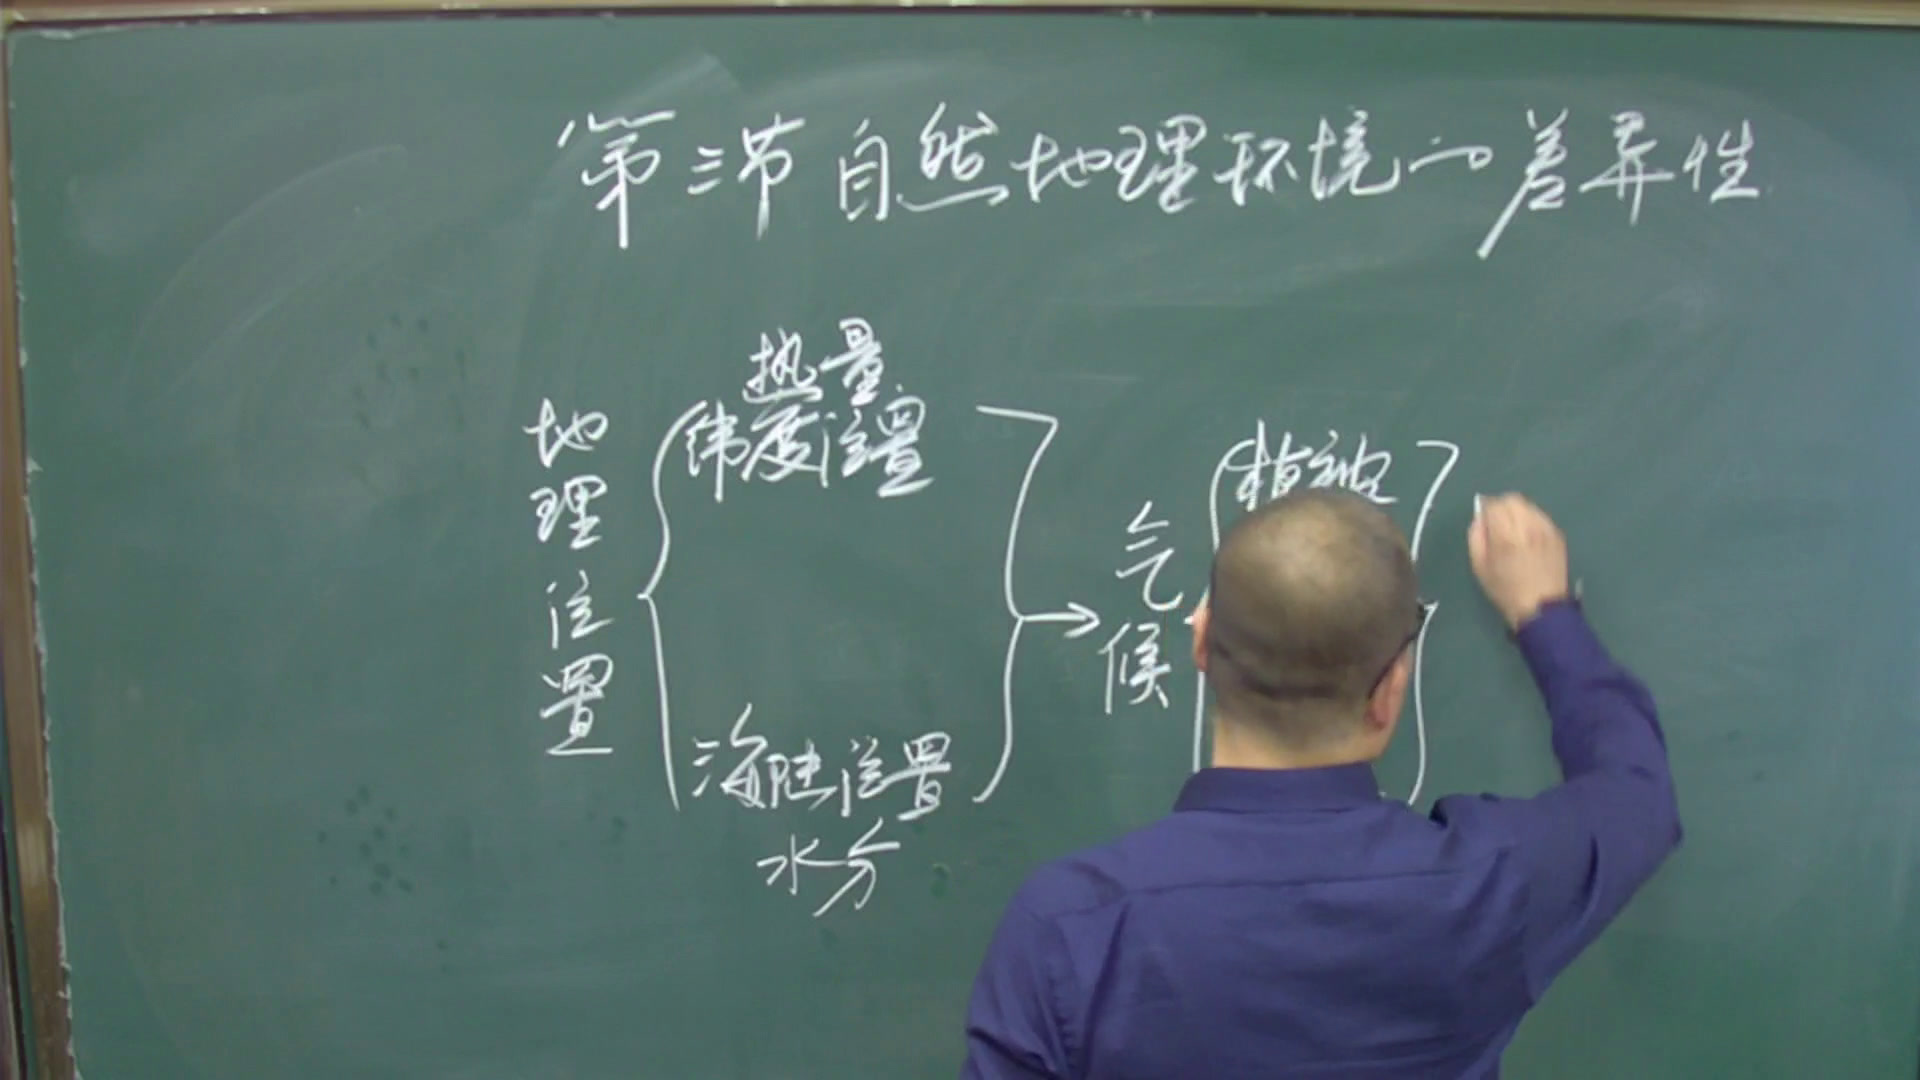 第三节 自然地理环境的差异性
地理位置
热量
纬度位置
海陆位置
水分
气候
植被